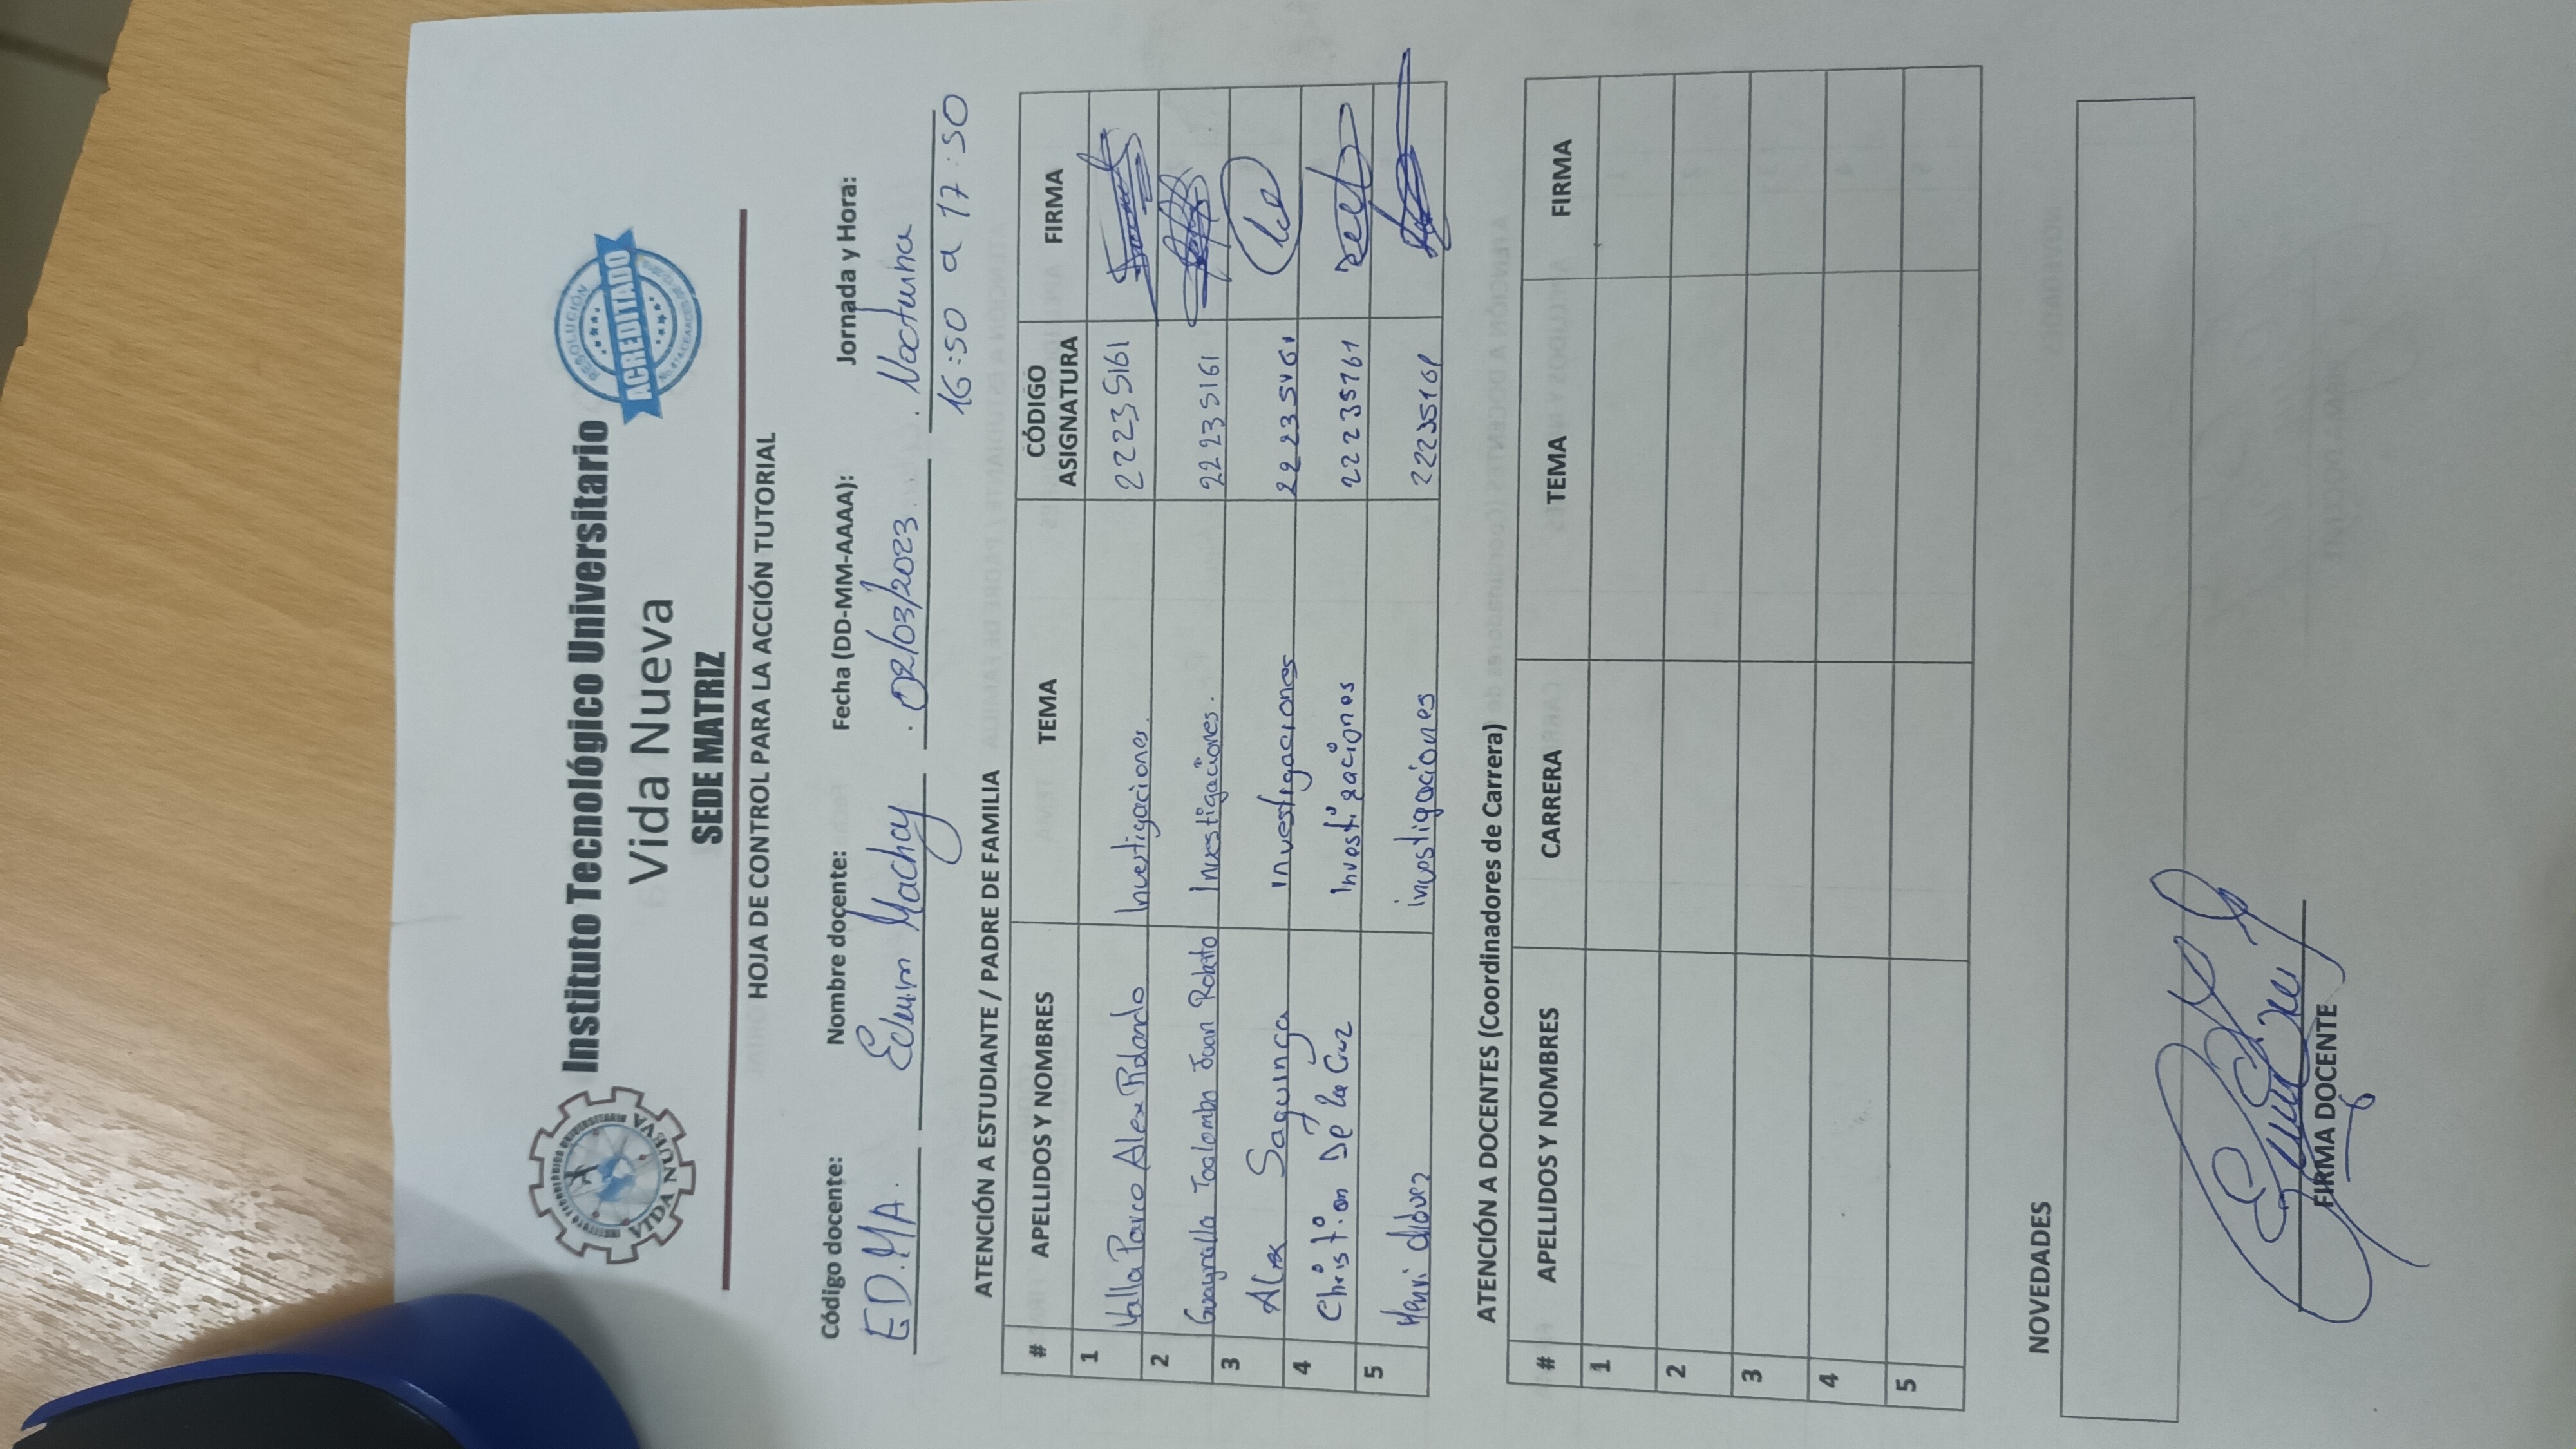 INSTITUTO TECNOLÓGICO UNIVERSITARIO
VIDA NUEVA
Instituto Tecnológico Universitario
Vida Nueva
SEDE MATRIZ
RESOLUCIÓN
ACREDITADO
HOJA DE CONTROL PARA LA ACCIÓN TUTORIAL
Código docente: Nombre docente: Fecha (DD-MM-AAAA): Jornada y Hora:
ED.MA. Edwin Machay 02/03/2023 Nocturna
16:50 a 17:50
ATENCIÓN A ESTUDIANTE / PADRE DE FAMILIA
# APELLIDOS Y NOMBRES TEMA CÓDIGO ASIGNATURA FIRMA
1 Valla Parco Alex Rolando Investigaciones. 22235161
2 Juan Investigaciones. 22235161
3 Alex Saquinga investigaciones 22235161
4 Christian De la Cruz Investigaciones 22235161
5 Henri investigaciones 22235161
ATENCIÓN A DOCENTES (Coordinadores de Carrera)
# APELLIDOS Y NOMBRES CARRERA TEMA FIRMA
1
2
3
4
5
NOVEDADES
FIRMA DOCENTE